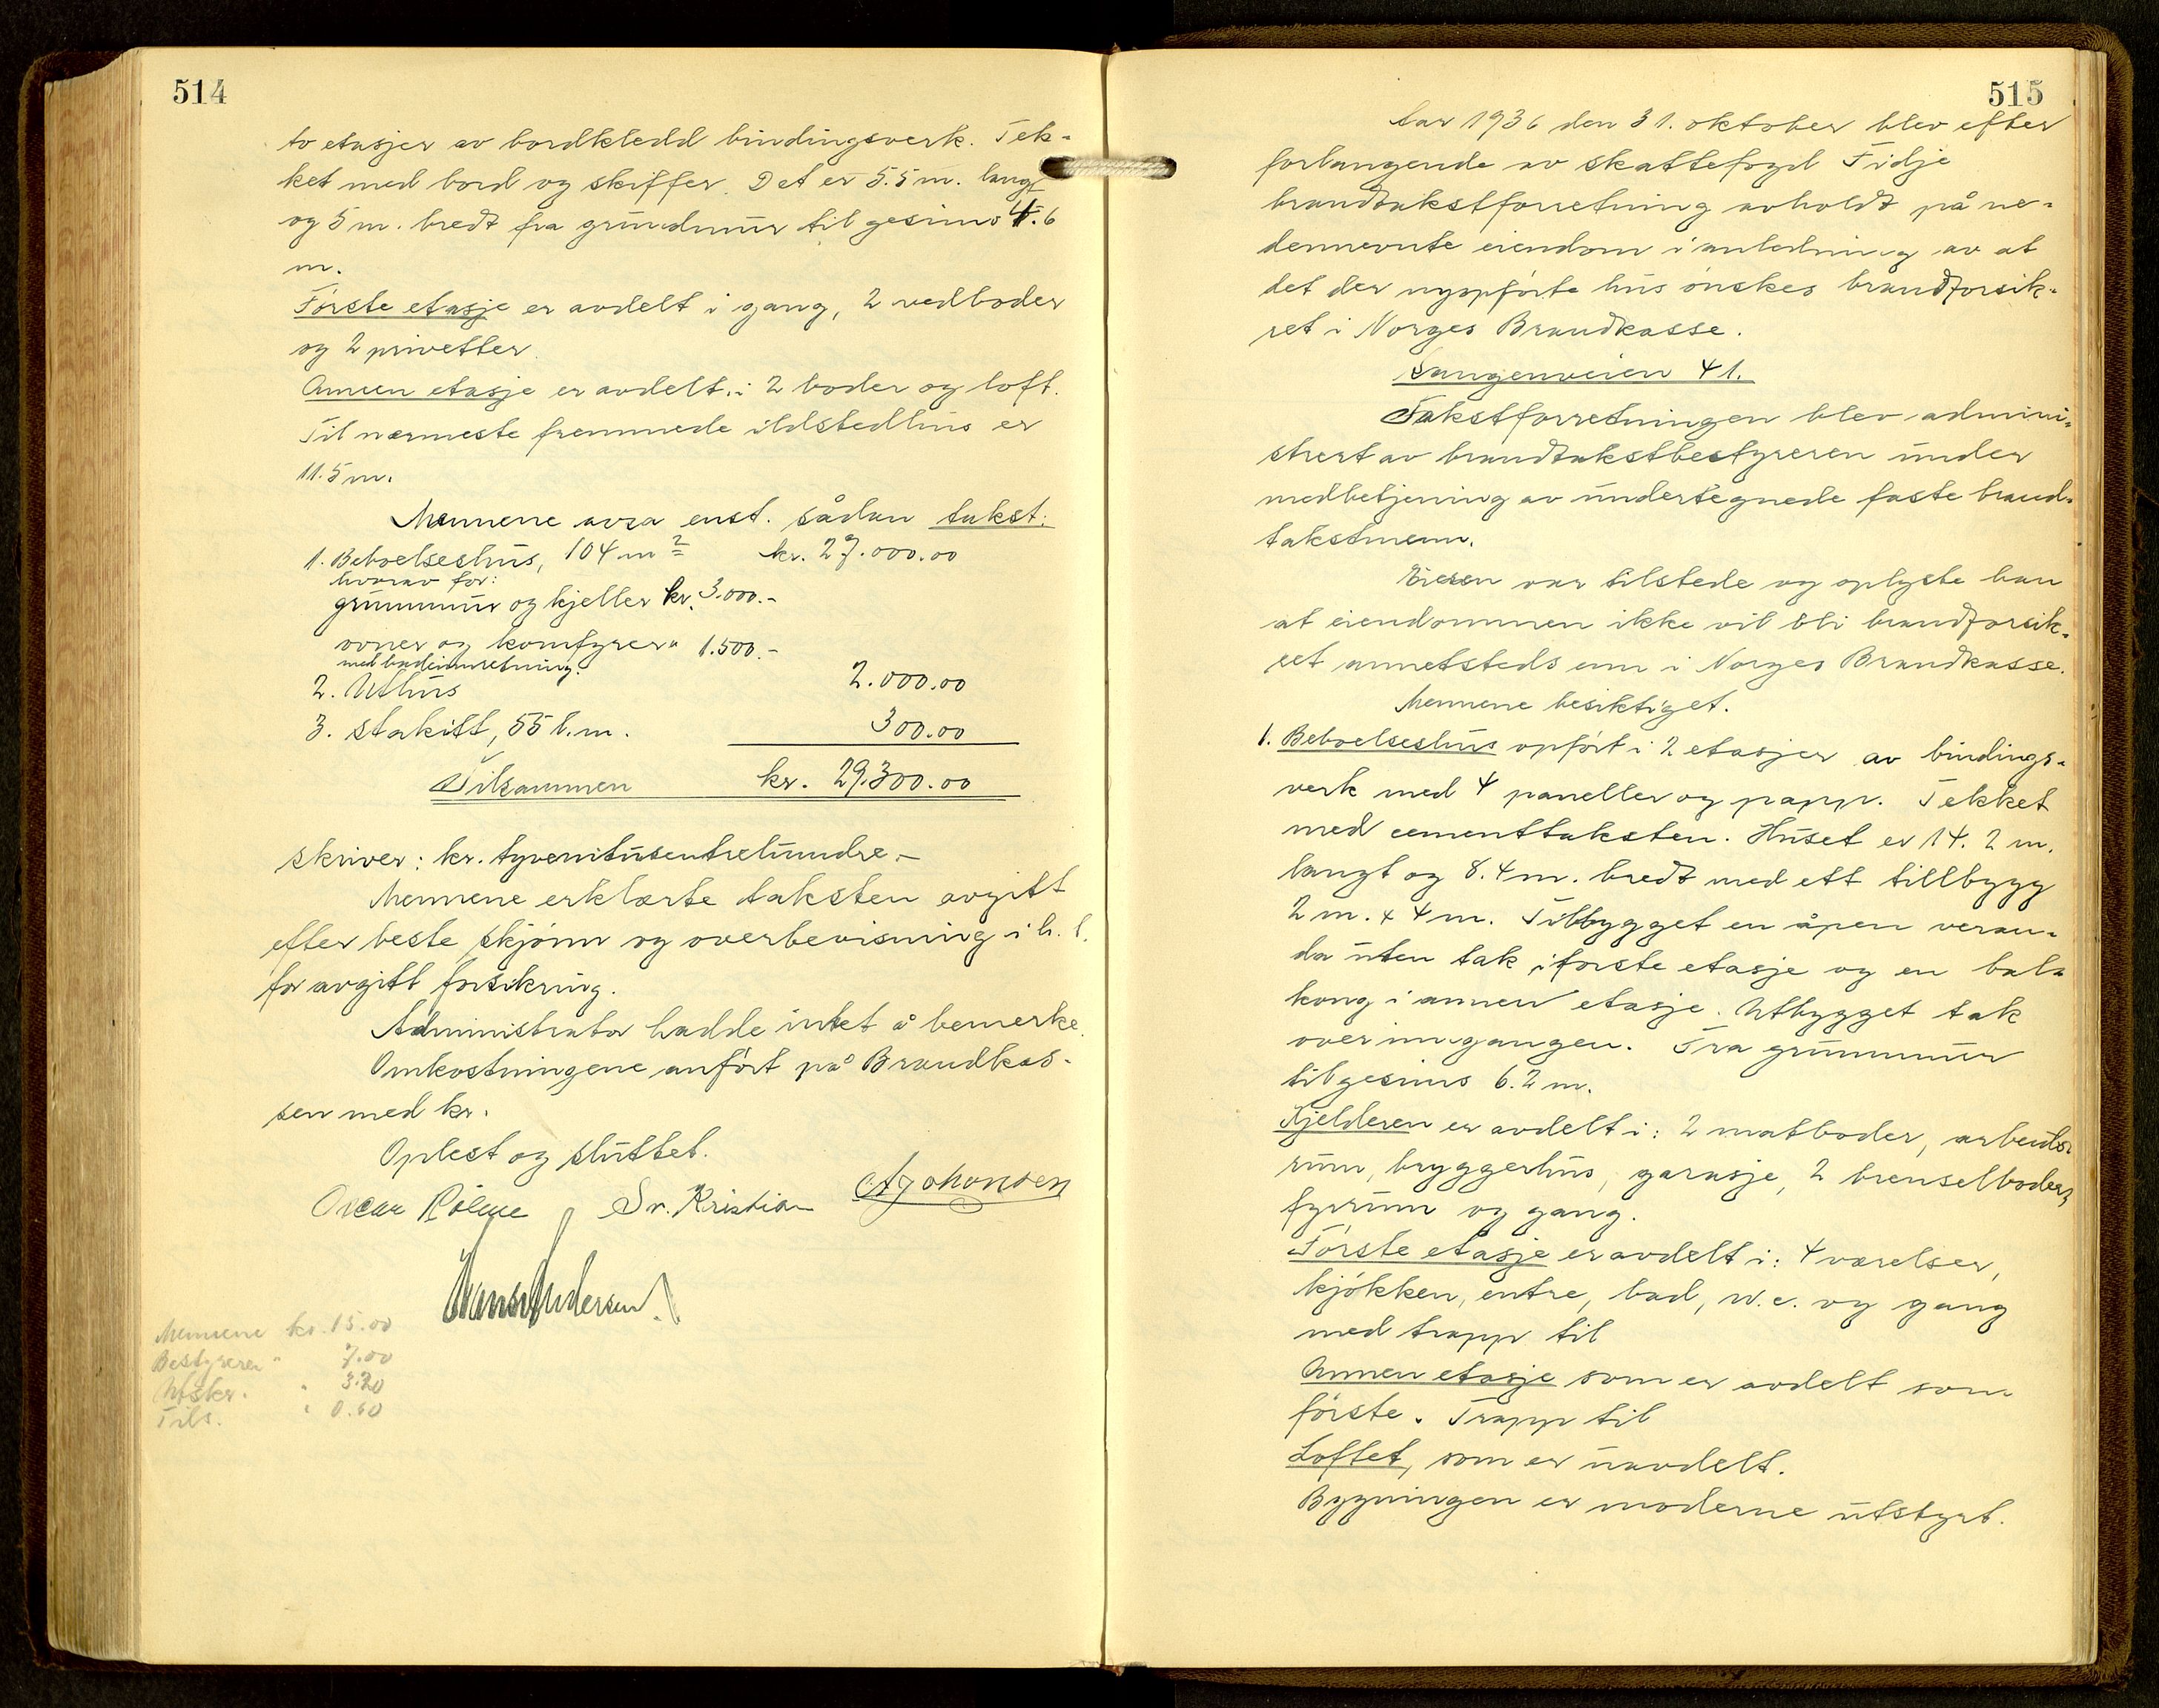 514
to etasjer av bordkledd bindingsverk. Tek-
ket med bord og skiffer. Det er 5.5 m. langt
og 5 m. bredt fra grundmur til gesims 4.6
m.
Første etasje er avdelt i gang, 2 vedboder
og 2 privetter.
Annen etasje er avdelt i 2 boder og loft.
Til nærmeste fremmede ildstedhus er
11.5 m.
Mennene avga enst. sådan takst:
1. Beboelseshus, 104 m² kr. 27.000.00
hvorav for:
grunnmur og kjeller kr. 3.000.-
ovner og komfyrer " 1.500.-
med badeinnretning.
2. Uthus 2.000.00
3. Stakitt, 55 l.m. 300.00
Tilsammen kr. 29.300.00
skriver: kr. tyvenitusentrehundre.-
Mennene erklærte taksten avgitt
efter beste skjønn og overbevisning i h. t.
før avgitt forsikring.
Administrator hadde intet å bemerke.
Omkostningene anført på Brandkas-
sen med kr.
Oplest og sluttet.
Oscar Sv. Kristian A Johansen
Hans Andersen.
Mennene kr. 15.00
Bestyreren " 7.00
Utskr. " 3.20
Tils. " 0.60
515
Aar 1936 den 31. oktober blev efter
forlangende av skattefogd Fidje
brandtakstforretning avholdt på ne-
dennevnte eiendom i anledning av at
det der nyopførte hus ønskes brandforsik-
ret i Norges Brandkasse.
Langenveien 41.
Takstforretningen blev admini-
strert av brandtakstbestyreren under
medbetjening av undertegnede faste brand-
takstmenn.
Eieren var tilstede og oplyste han
at eiendommen ikke vil bli brandforsik-
ret annetsteds enn i Norges Brandkasse.
Mennene besiktiget.
1. Beboelseshus opført i 2 etasjer av bindings-
verk med 4 paneller og papp. Tekket
med cementtaksten. Huset er 14.2 m.
langt og 8.4 m. bredt med ett tillbygg
2 m. x 4 m. Tilbygget en åpen veran-
da uten tak i første etasje og en bal-
kong i annen etasje. Utbygget tak
over inngangen. Fra grunnmur
til gesims 6.2 m.
Kjelderen er avdelt i: 2 matboder, arbeids-
rum, bryggerhus, garasje, 2 brenselboder,
fyrrum og gang.
Første etasje er avdelt i: 4 værelser,
kjøkken, entre, bad, w.c. og gang
med trapp til
Annen etasje som er avdelt som
første. Trapp til
Loftet, som er uavdelt.
Bygningen er moderne utstyrt.